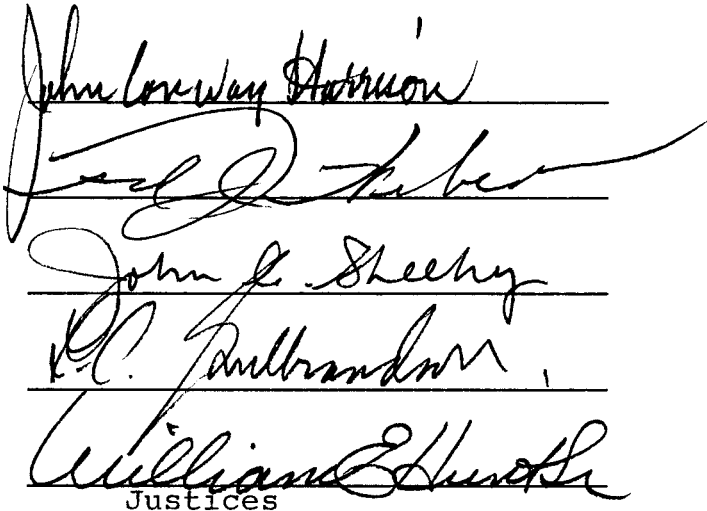 John Conway Harrison
Fred J. Weber
John C. Sheehy
L.C. Gulbrandson
William E Hunt Sr
Justices